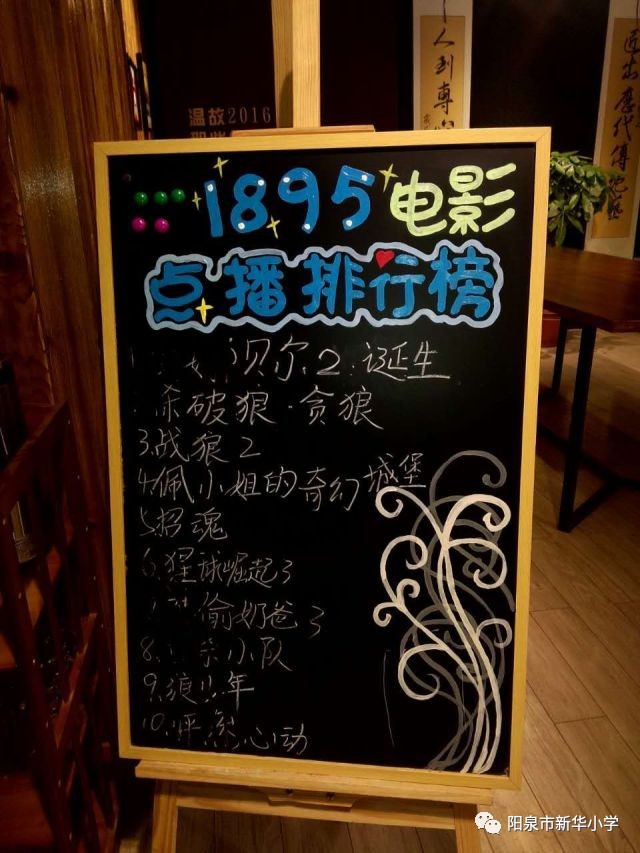 温故2016
人到專
匠出歷代傳記藝
1895电影
点播排行榜
贝尔2.诞生
杀破狼·贪狼
3.战狼2
4.佩小姐的奇幻城堡
5.招魂
6.猩球崛起3
偷奶爸3
8.小队
9.狼少年
10.怦然心动
阳泉市新华小学